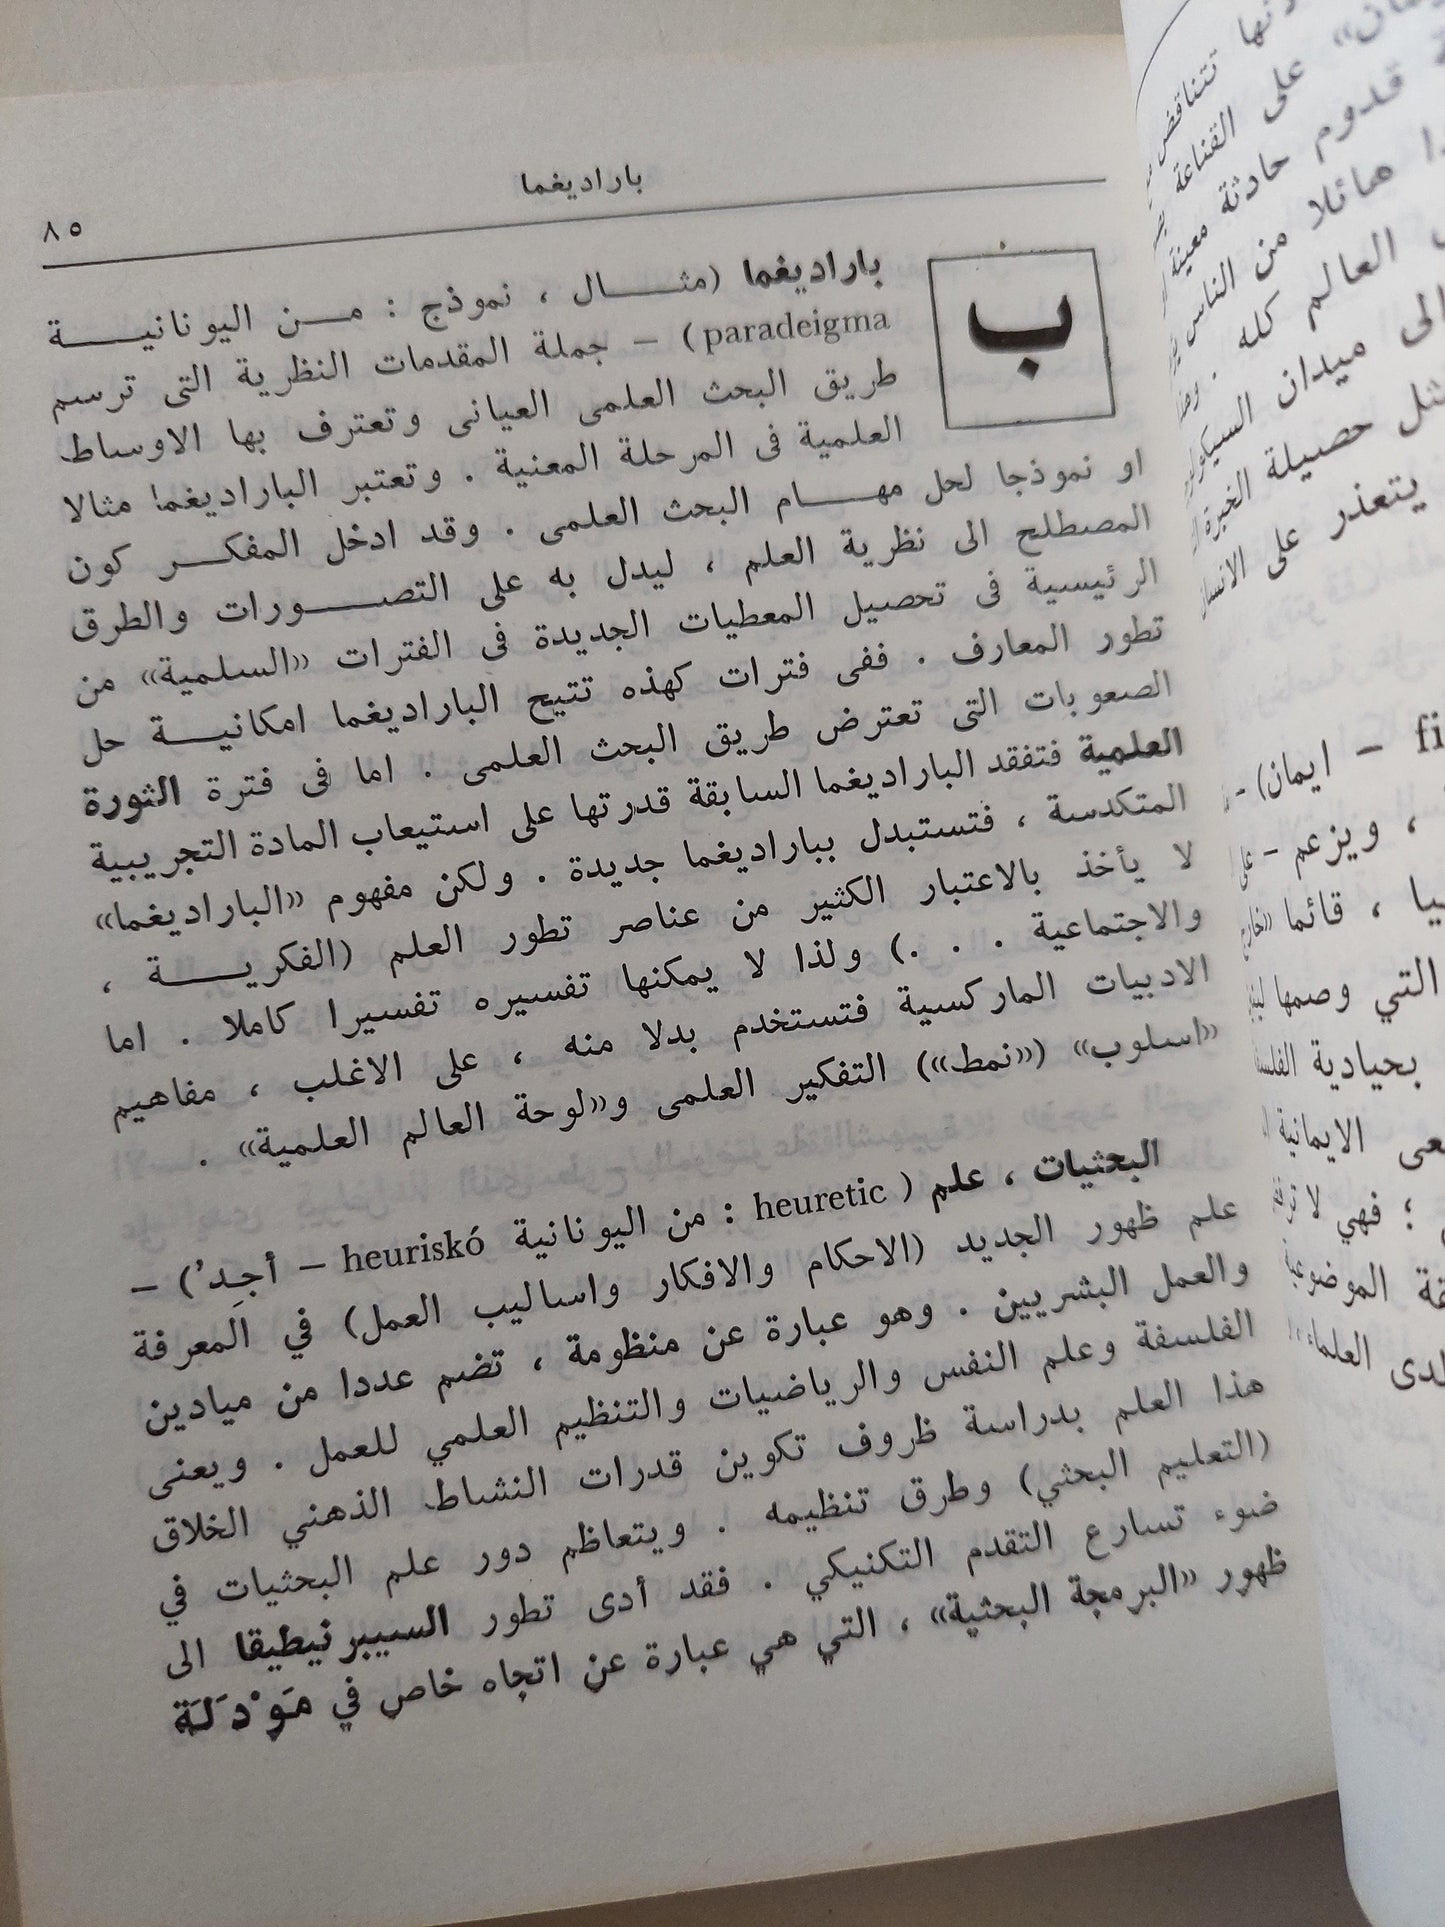 باراديغما
٨٥
ب
باراديغما (مثـــال ، نموذج : مـــن اليونانيـــة
paradeigma) – جملة المقدمات النظرية التى ترسم
طريق البحث العلمى العيانى وتعترف بها الاوساط
العلمية فى المرحلة المعنية . وتعتبر الباراديغما مثالا
او نموذجا لحل مهـــام البحث العلمى . وقد ادخل المفكـــر كون
المصطلح الى نظرية العلم ، ليدل به على التصـــورات والطرق
الرئيسية فى تحصيل المعطيات الجديدة فى الفترات «السلمية» من
تطور المعارف . ففى فترات كهذه تتيح الباراديغما امكانيـــة حل
الصعوبات التى تعترض طريق البحث العلمى . اما فى فترة الثورة
العلمية فتفقد الباراديغما السابقة قدرتها على استيعاب المادة التجريبية
المتكدسة ، فتستبدل بباراديغما جديدة . ولكن مفهوم «الباراديغما»
لا يأخذ بالاعتبار الكثير من عناصر تطور العلم (الفكريـــة ،
والاجتماعية . . .) ولذا لا يمكنها تفسيره تفسيرا كاملا . اما
الادبيات الماركسية فتستخدم بدلا منه ، على الاغلب ، مفاهيم
«اسلوب» («نمط») التفكير العلمى و«لوحة العالم العلمية» .
البحثيات ، علم ( heuretic : من اليونانية heuriskó – أجِد’) –
علم ظهور الجديد (الاحكام والافكار واساليب العمل) في المعرفة
والعمل البشريين . وهو عبارة عن منظومة ، تضم عددا من ميادين
الفلسفة وعلم النفس والرياضيات والتنظيم العلمي للعمل . ويعنى
هذا العلم بدراسة ظروف تكوين قدرات النشاط الذهني الخلاق
(التعليم البحثي) وطرق تنظيمه . ويتعاظم دور علم البحثيات في
ضوء تسارع التقدم التكنيكي . فقد أدى تطور السيبرنيطيقا الى
ظهور «البرمجة البحثية» ، التي هي عبارة عن اتجاه خاص في مَوْدَلَة
تتناقض
على القناعة
قدوم حادثة معينة
هائلا من الناس
العالم كله .
الى ميدان
حصيلة الخبرة
يتعذر على
fi – ايمان) –
، ويزعم – على
، قائما
التي وصمها
بحيادية
الايمانية
؛ فهي لا
الموضوعية
لدى العلماء